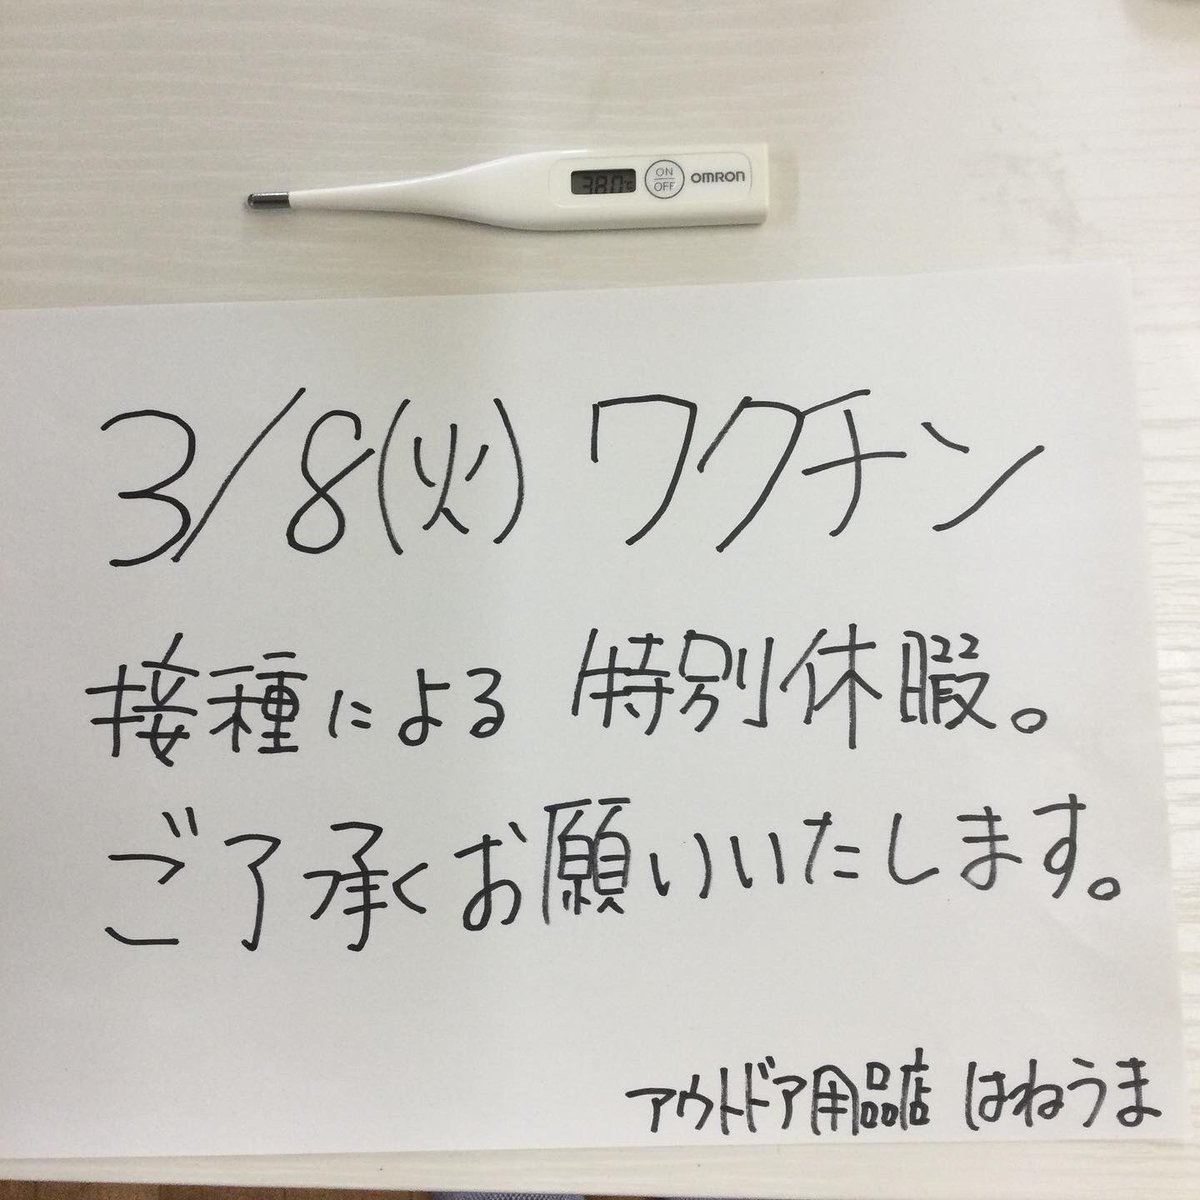 38.0℃ ON OFF OMRON
3/8(火) ワクチン
接種による 特別休暇。
ご了承くお願いいたします。
アウトドア用品店 はねうま